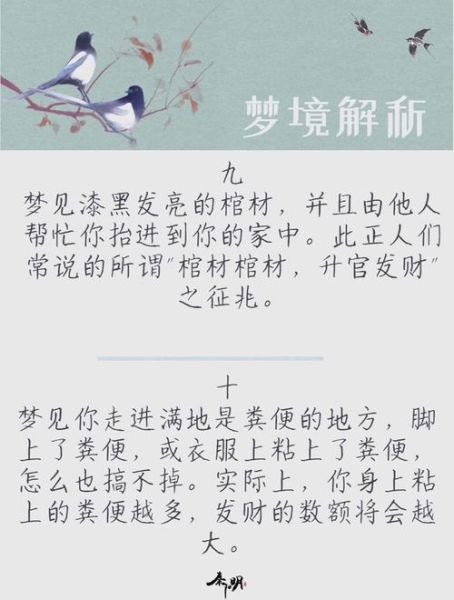 梦境解析
九
梦见漆黑发亮的棺材，并且由他人
帮忙你抬进到你的家中。此正人们
常说的所谓"棺材棺材，升官发财"
之征兆。
十
梦见你走进满地是粪便的地方，脚
上了粪便，或衣服上粘上了粪便，
怎么也搞不掉。实际上，你身上粘
上的粪便越多，发财的数额将会越
大。
秦明